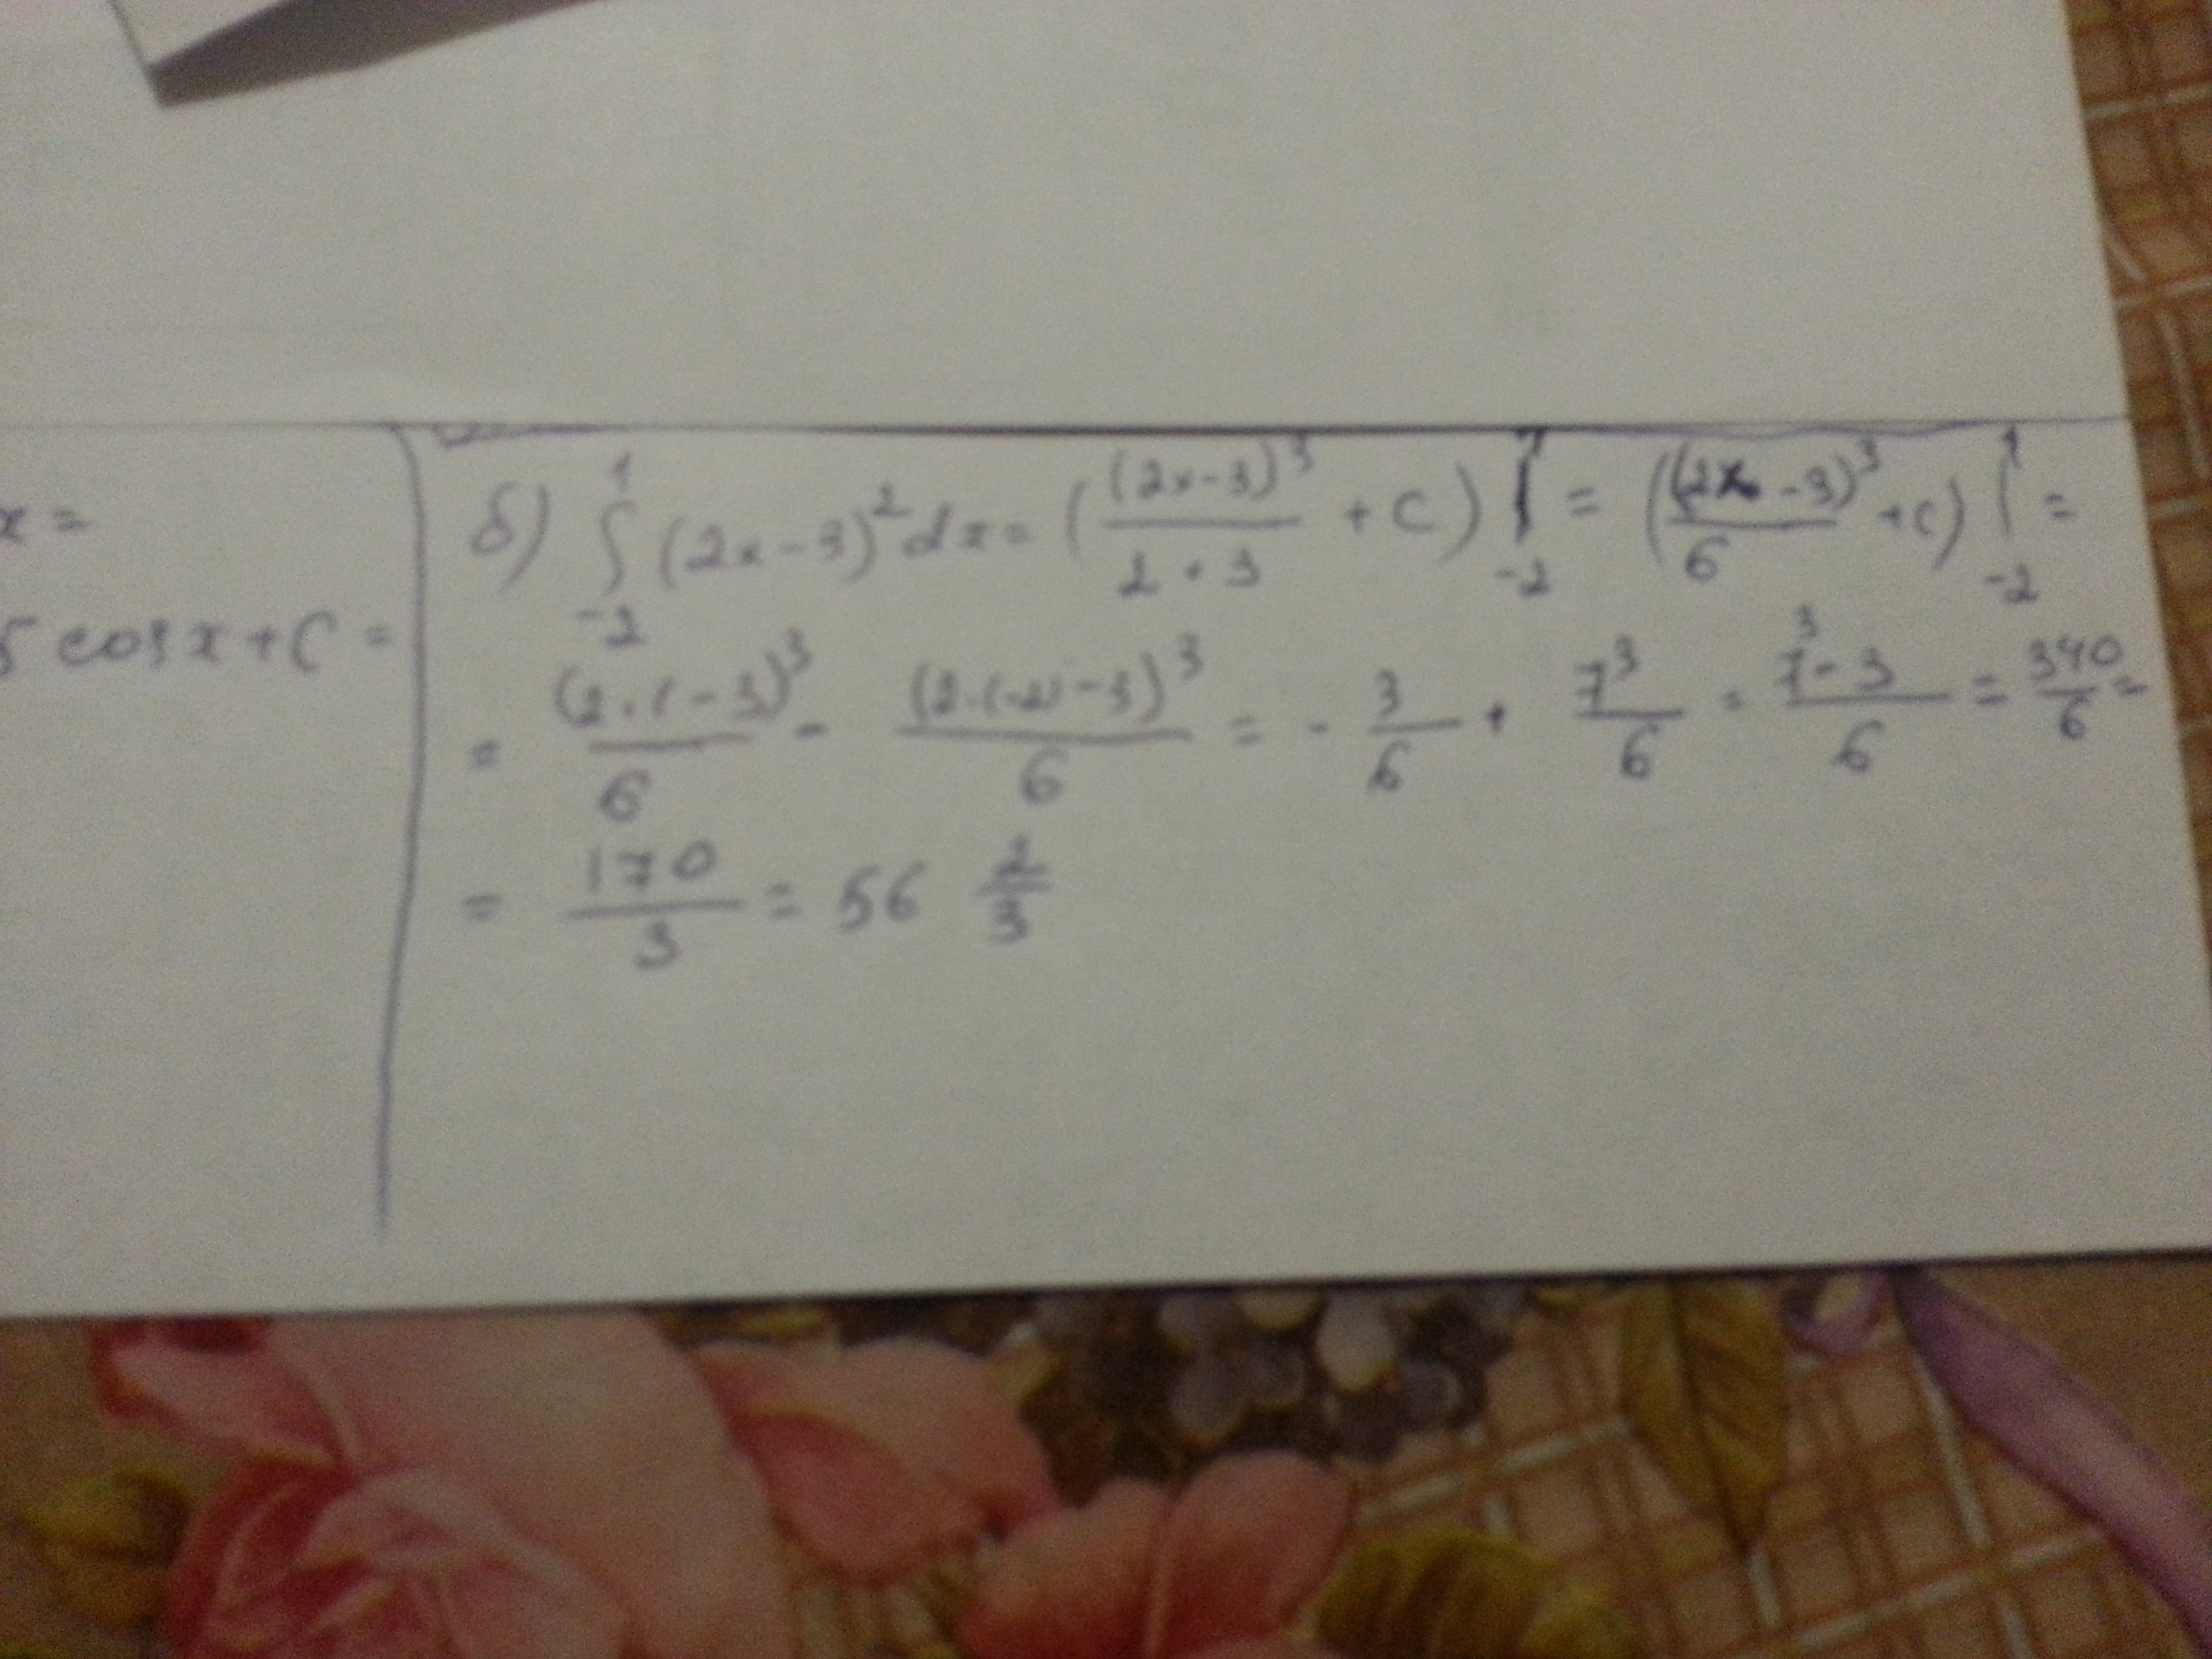 x =
5 cos x + C =
б) ∫₋₂¹ (2x - 3)² dx = ( (2x - 3)³ / 2 · 3 + C ) |₋₂¹ = ( (2x - 3)³ / 6 + C ) |₋₂¹ =
= (2 · 1 - 3)³ / 6 - (2 · (-2) - 3)³ / 6 = - 3 / 6 + 7³ / 6 = 7³ - 3 / 6 = 340 / 6 =
= 170 / 3 = 56 2/3